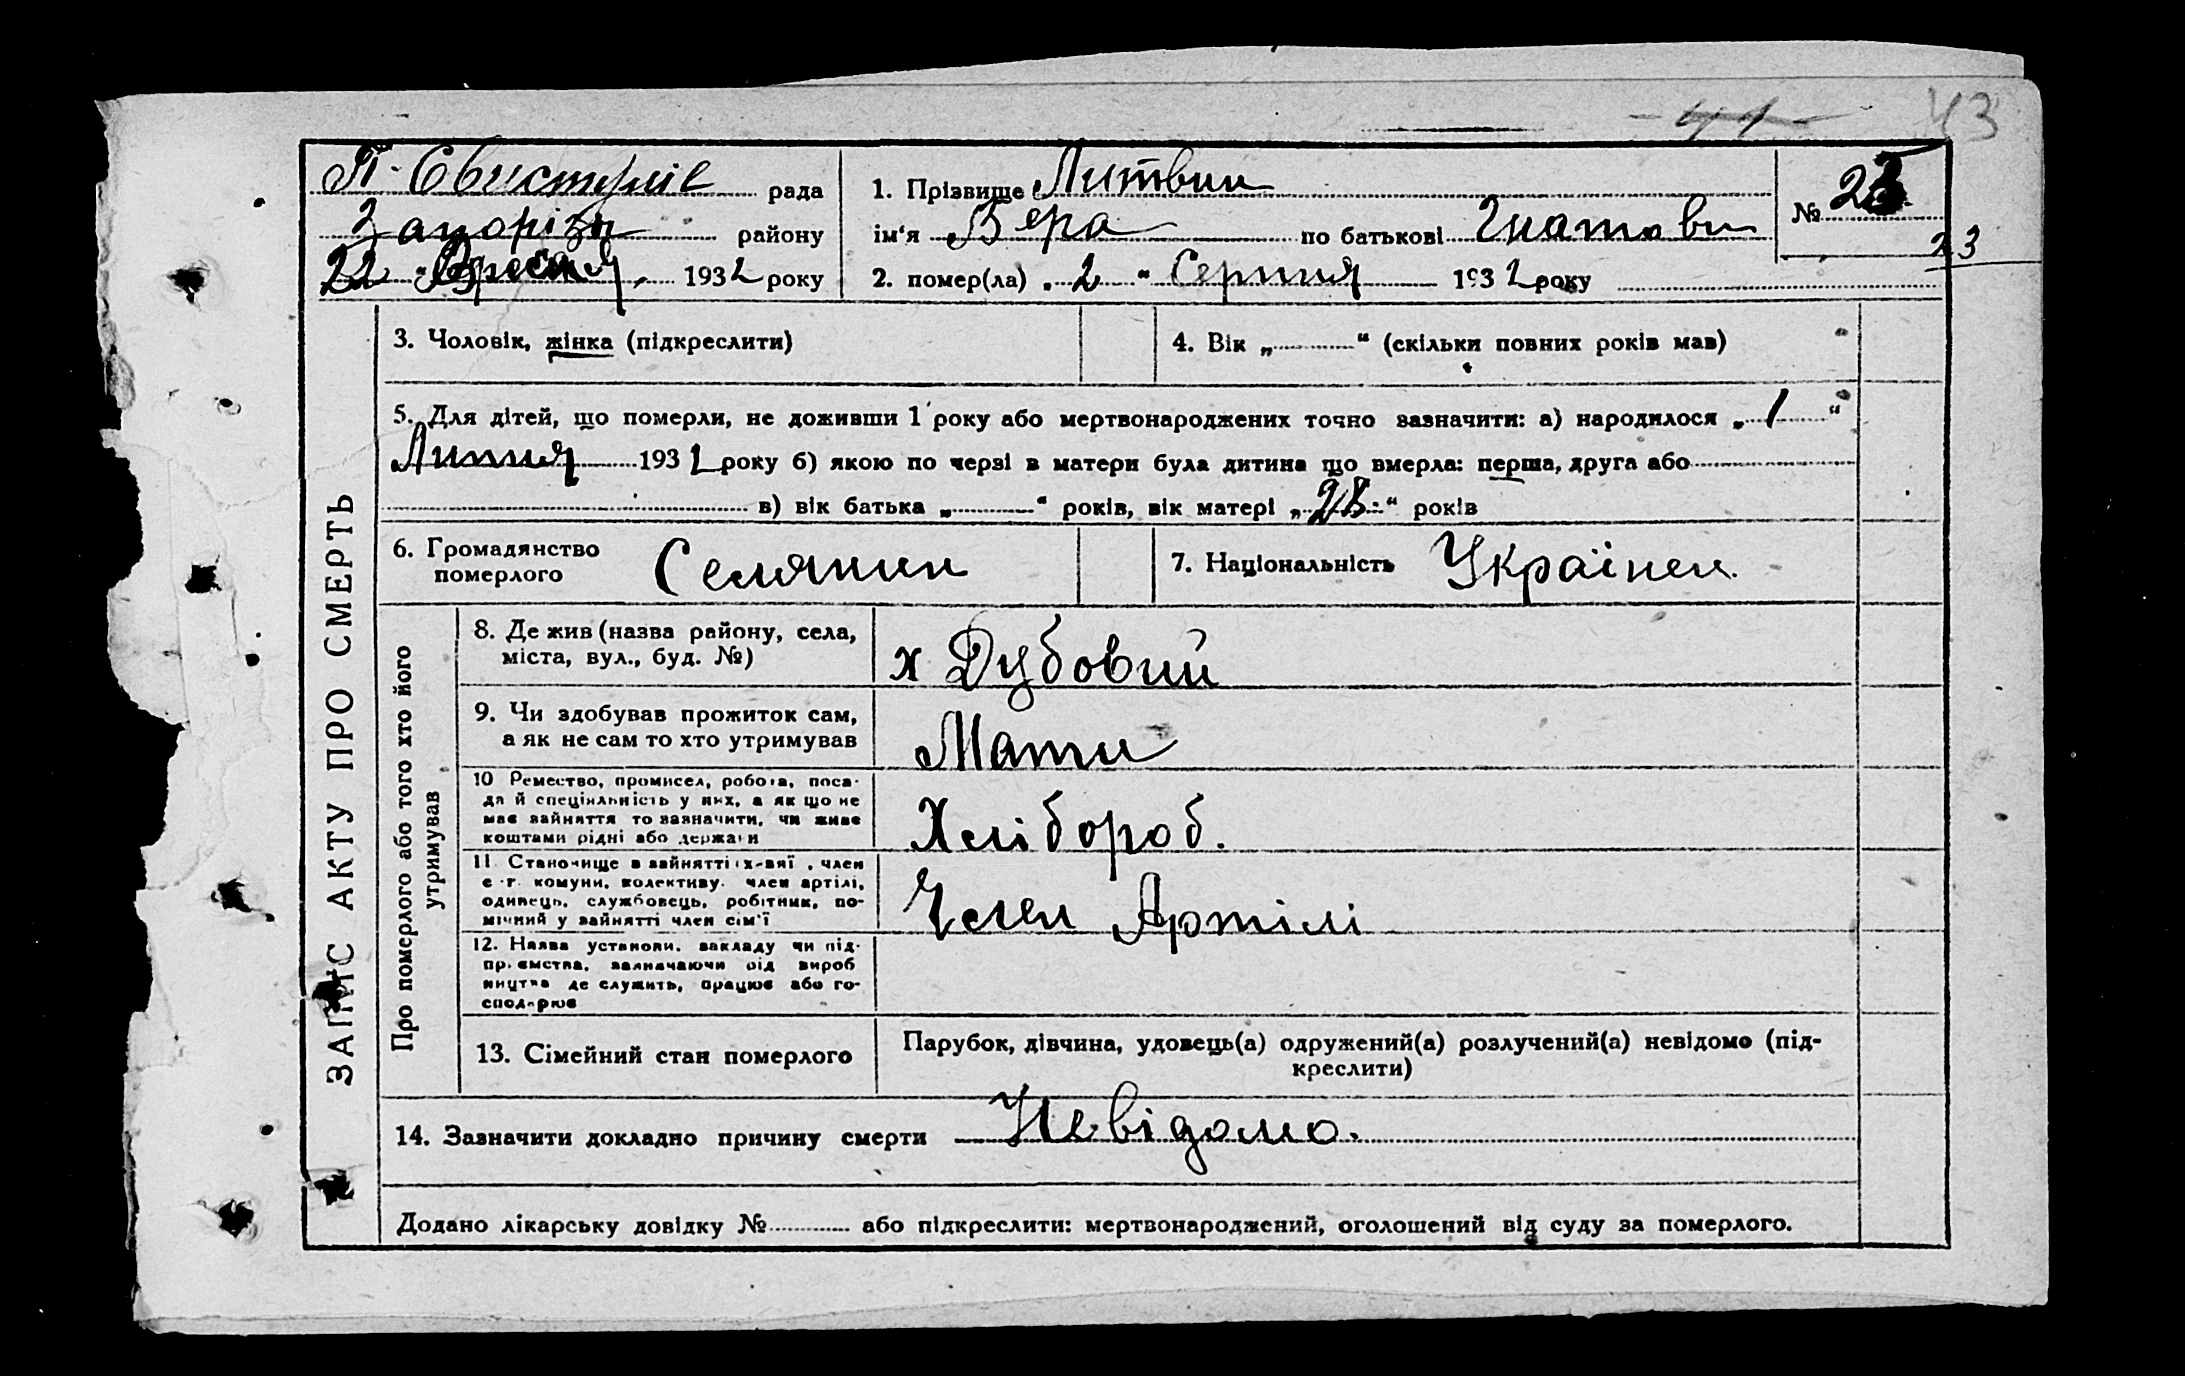 43
П. Свистунів рада
Запорізьк району
22 " Вресня 1932 року
1. Прізвище Литвин
ім‘я Вера по батькові Гнатови
2. помер(ла) „ 2 “ Серпня 1932 року
№ 23
23
ЗАПИС АКТУ ПРО СМЕРТЬ
3. Чоловік, жінка (підкреслити)
4. Вік „ “ (скільки повних років мав)
5. Для дітей, що померли, не доживши 1 року або мертвонароджених точно зазначити: а) народилося „ 1 “
Липня 1932 року б) якою по черзі в матери була дитина що вмерла: перша, друга або
в) вік батька „ “ років, вік матері „ 28 “ років
6. Громадянство
померлого
Селянин
7. Національність Українец
Про померлого або того хто його
утримував
8. Де жив (назва району, села,
міста, вул., буд. №)
х Дубовий
9. Чи здобував прожиток сам,
а як не сам то хто утримував
Мати
10 Ремество, промисел, робота, поса-
да й спеціяльність у них, а як що не
має зайняття то зазначити, чи живе
коштами рідні або держави
Хлібороб.
11. Становище в зайнятті: х-вяї , член
с.-г. комуни, колективу. член артілі,
одинець, службовець, робітник, по-
мічний у зайнятті член сім‘ї
Член Артілі
12. Назва установи, закладу чи під-
приємства, зазначаючи рід вироб
ництва де служить, працює або го-
сподарює
13. Сімейний стан померлого
Парубок, дівчина, удовець(а) одружений(а) розлучений(а) невідомо (під-
креслити)
14. Зазначити докладно причину смерти Невідомо.
Додано лікарську довідку № або підкреслити: мертвонароджений, оголошений від суду за померлого.